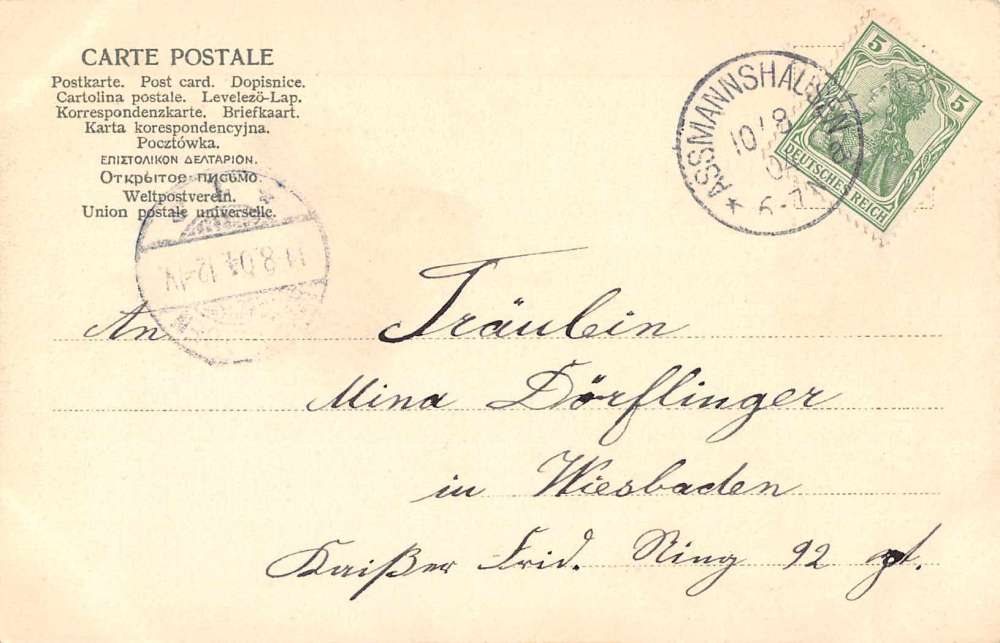 CARTE POSTALE
Postkarte. Post card. Dopisnice.
Cartolina postale. Levelező-Lap.
Korrespondenzkarte. Briefkaart.
Karta korespondencyjna.
Pocztówka.
ΕΠΙΣΤΟΛΙΚΟΝ ΔΕΛΤΑΡΙΟΝ.
Открытое письмо
Weltpostverein.
Union postale universelle.
ASSMANNSHAUSEN
10/8
6-7
5
5
DEUTSCHES REICH
11.8.04. 12-1V.
An Fräulein
Mina Dörflinger
in Wiesbaden
Kaißer Frid. Ring 92